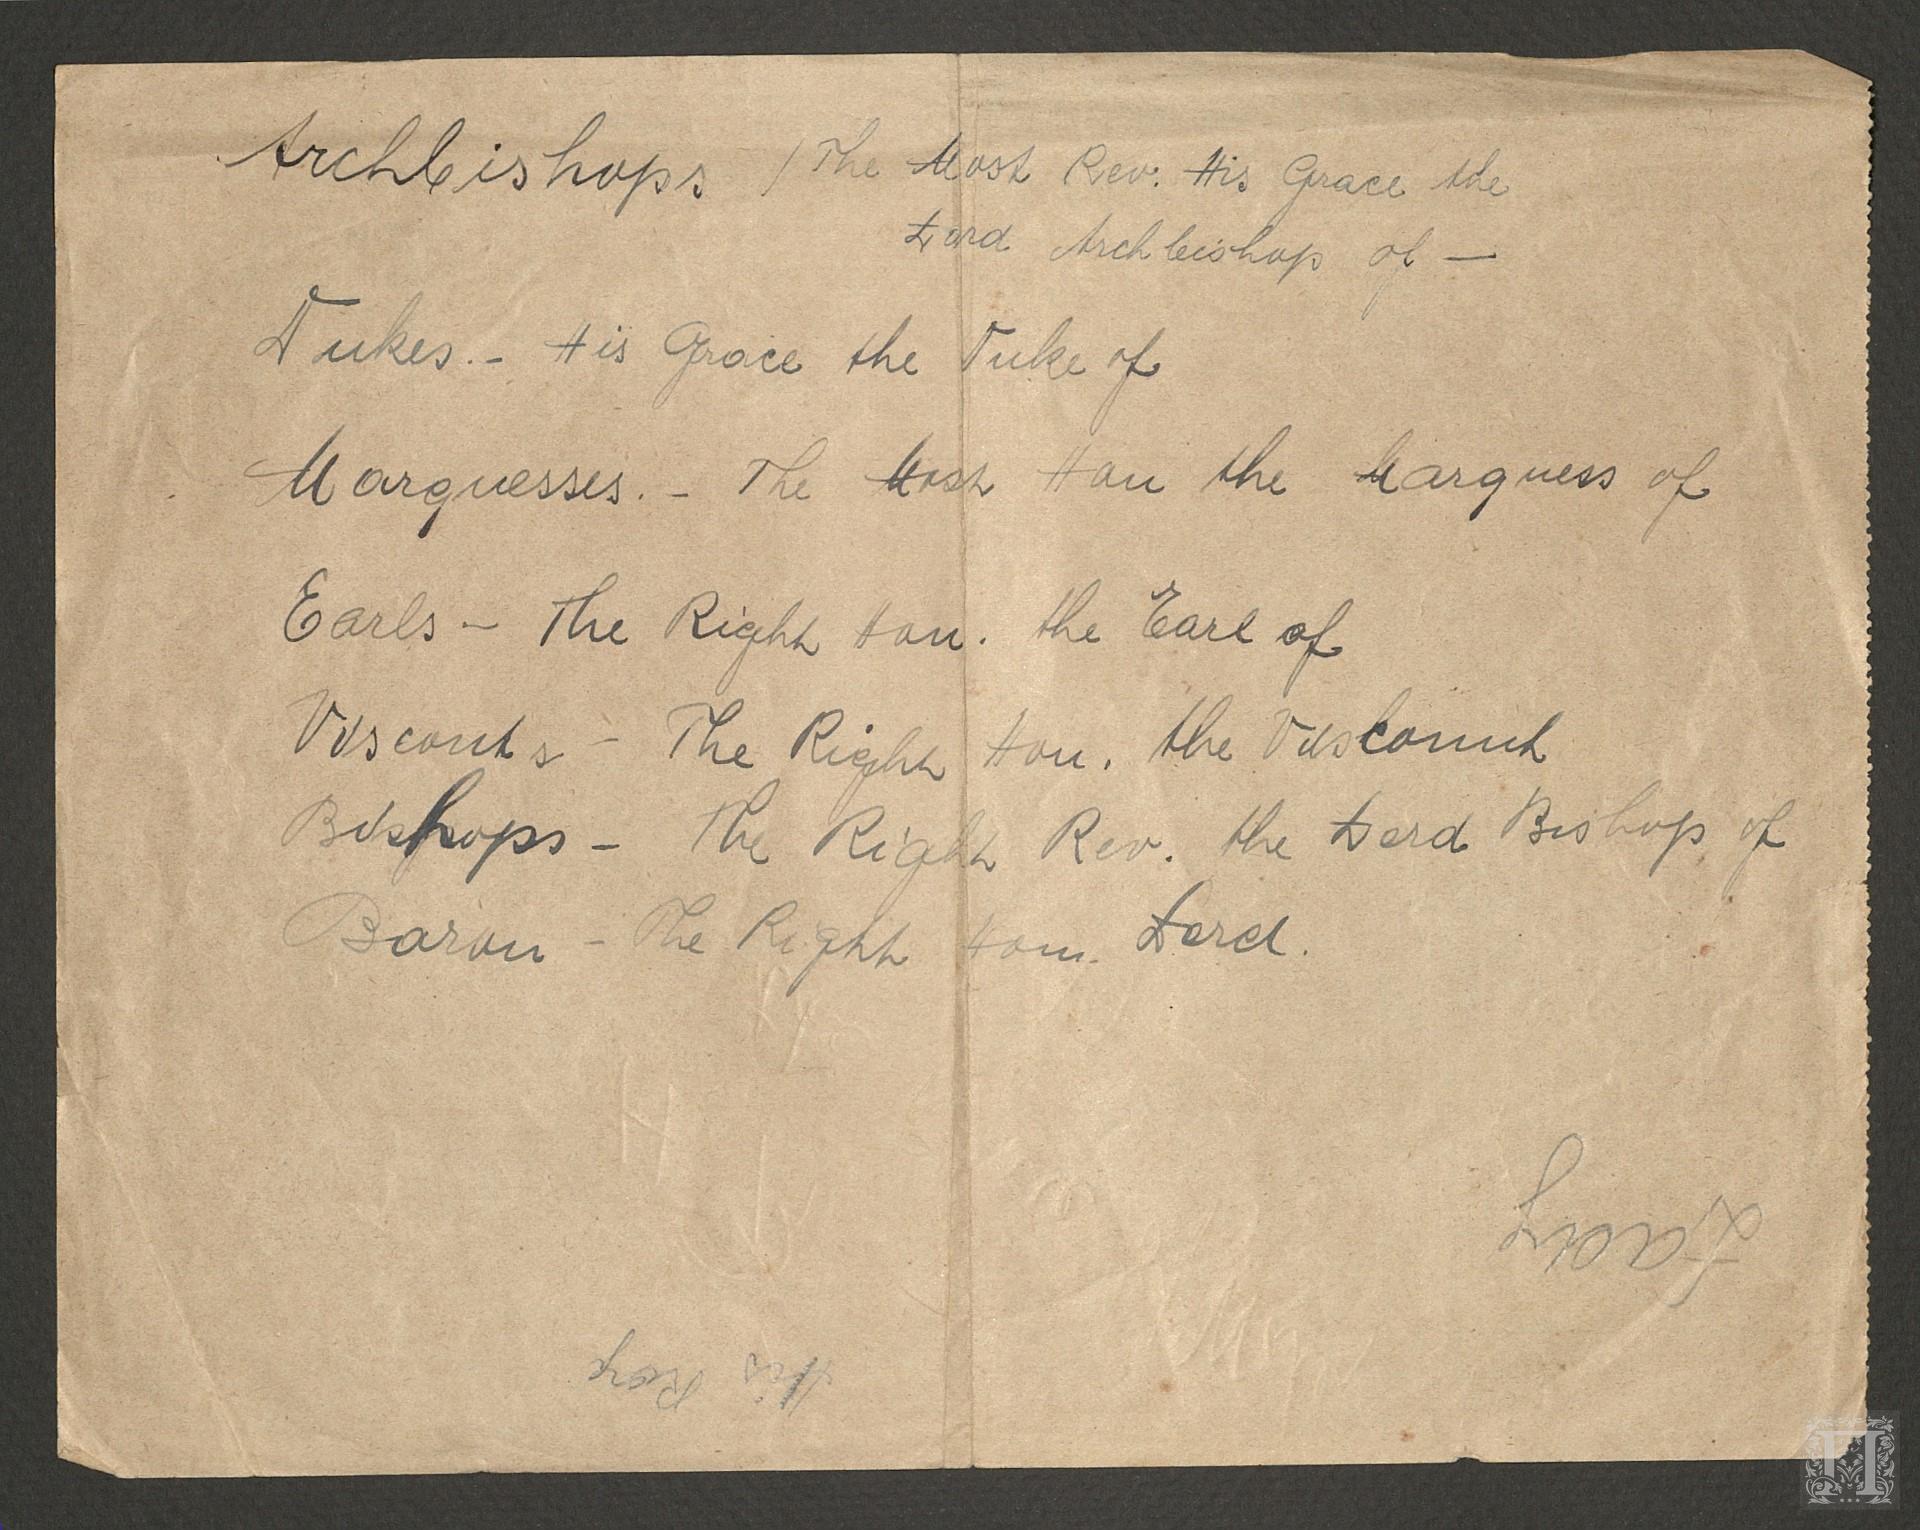 Archbishops / The Most Rev. His Grace the
Lord Archbishop of —
Dukes. - His Grace the Duke of
Marquesses. - The Most Hon the Marquess of
Earls - The Right Hon. the Earl of
Visconts - The Right Hon. the Viscount
Bishops - The Right Rev. the Lord Bishop of
Baron - The Right Hon. Lord.
Lady
His